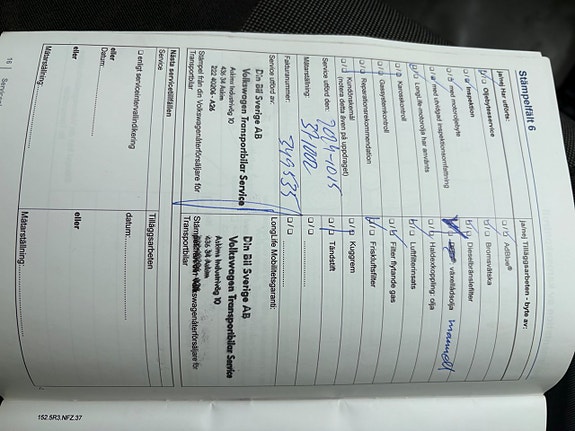 Stämpelfält 6
ja/nej Har utförts:
Oljebytesservice
Inspektion
med motoroljebyte
med utvidgad inspektionsomfattning
LongLife-motorolja har använts
Karroskontroll
Gassystemkontroll
Reparationsrekommendation
Kundönskemål
(notera detta även på uppdraget)
Service utförd den: 2024-1015
Mätarställning:
Fakturanummer: 349535
Service utförd av:
Din Bil Sverige AB
Volkswagen Transportbilar Service
436 34 Askim
Stämpel från din Volkswagenåterförsäljare för
Transportbilar
Nästa servicetillfällen
Service
enligt serviceintervallindikering
eller
Datum:
eller
Mätarställning:
ja/nej Tilläggsarbeten - byte av:
AdBlue®
Bromsvätska
Dieselbränslefilter
växellådsolja manuell
Haldexkoppling olja
Luftfilterinsats
Filter flytande gas
Friskluftsfilter
Kuggrem
Tändstift
LongLife Mobilitetsgaranti:
Din Bil Sverige AB
Volkswagen Transportbilar Service
436 34 Askim
Transportbilar
Tilläggsarbeten
datum:
eller
Mätarställning:
16
152.5R3.NFZ.37